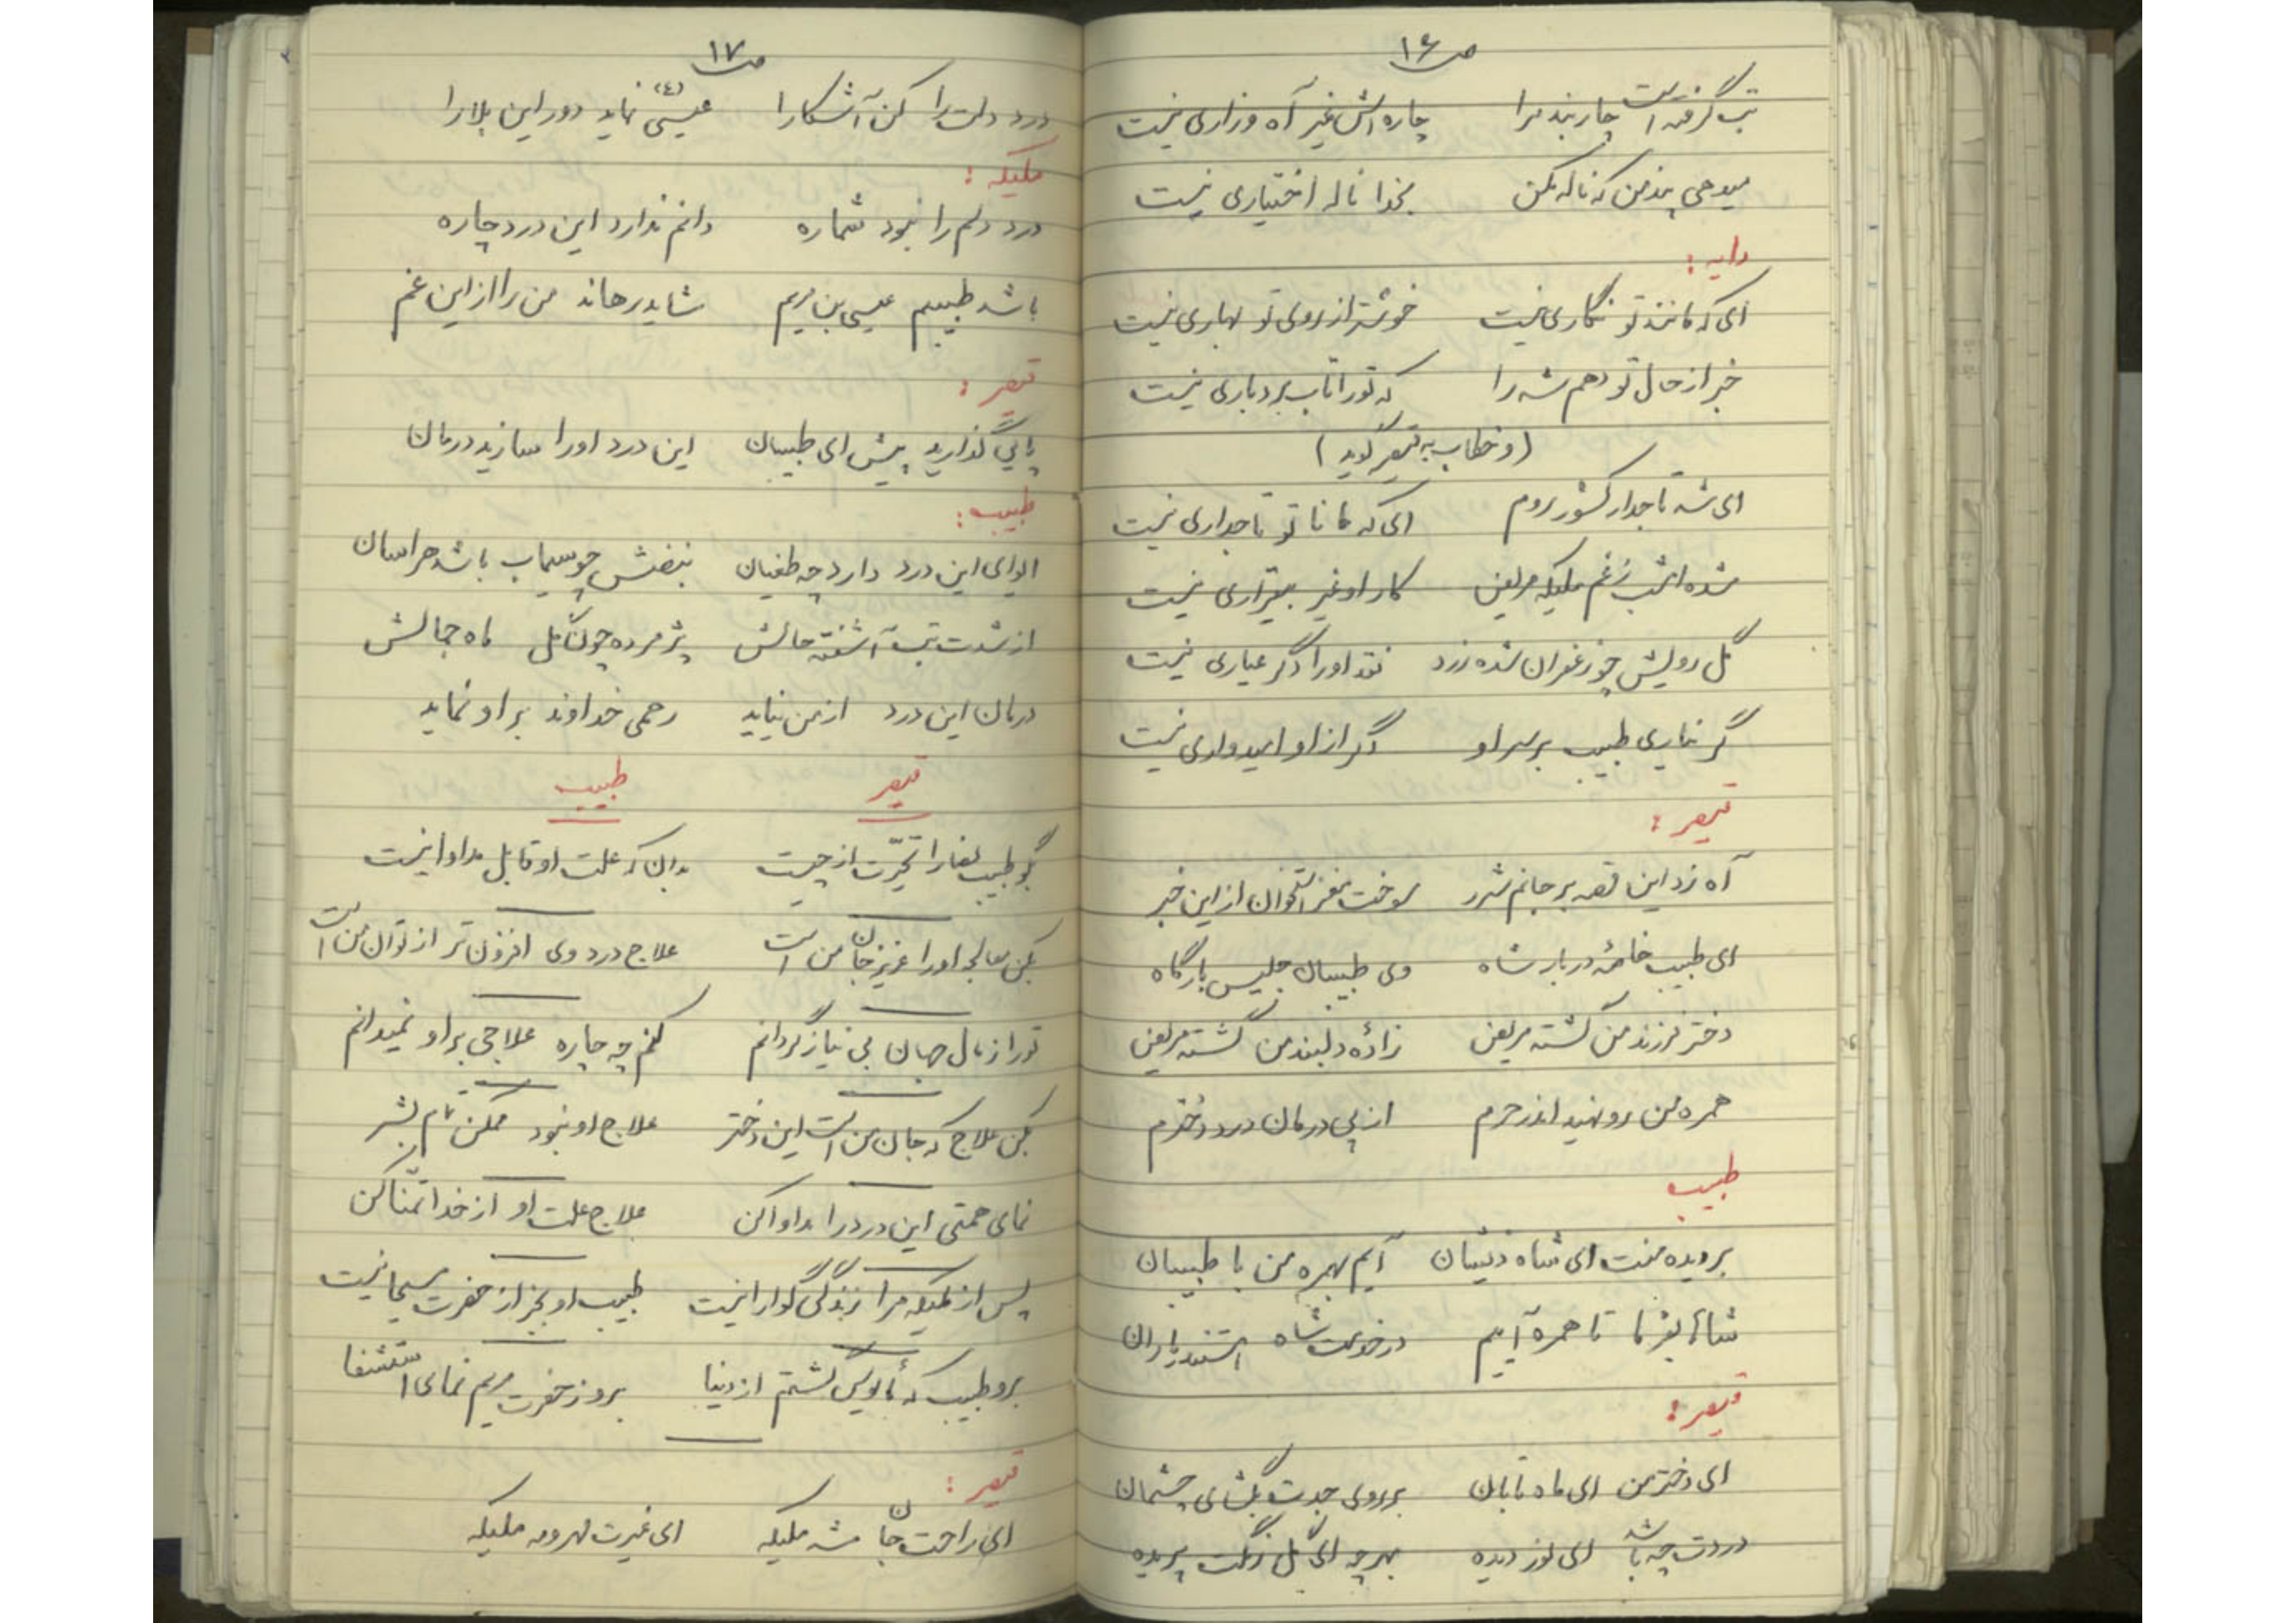 ص۱۶
تب گرفته است چار بند مرا چاره اش غیر آه و زاری نیست
میدهی پند من که ناله مکن بخدا ناله اختیاری نیست
دایه :
ای که مانند تو نگاری نیست خوشتر از روی تو بهاری نیست
خبر از حال تو دهم شه را که تو را تاب بردباری نیست
(و خطاب به قیصر گوید)
ای شه تاجدار کشور روم ای که مانا تو تاجداری نیست
شده امشب ز غم ملیکه مریض کار او غیر بیقراری نیست
گل رویش چو زعفران شده زرد نقد او را دگر عیاری نیست
گر نیاری طبیب بر سر او دگر از او امیدواری نیست
قیصر :
آه زد این قصه بر جانم شرر سوخت مغز استخوان از این خبر
ای طبیب خاصهٔ دربار شاه وی طبیبان جلیس بارگاه
دختر فرزند من گشته مریض زادهٔ دلبند من گشته مریض
همره من رو نهید اندر حرم از پی درمان درد دخترم
طبیب
بر دیده منت ای شاه ذیشان آیم بهمره من با طبیبان
شاها بفرما تا همره آیم در خدمت شاه استند یاران
قیصر :
ای دختر من ای ماه تابان بر روی جدت بگشای چشمان
دردت چه باشد ای نور دیده بهر چه ای گل رنگت پریده
ص۱۷
درد دلت را کن آشکارا عیسی (ع) نماید دور این بلا را
ملیکه :
درد دلم را نبود شماره دانم ندارد این درد چاره
باشد طبیبم عیسی بن مریم شاید رهاند من را از این غم
قیصر :
پایی گذارید پیش ای طبیبان این درد او را سازید درمان
طبیب :
ای وای این درد دارد چه طغیان نبضش چو سیماب باشد هراسان
از شدت تب آشفته حالش پژمرده چون گل ماه جمالش
درمان این درد از من نیاید رحمی خداوند بر او نماید
قیصر طبیب
بگو طبیب لقا را تحیّرت از چیست بدان که علت او قابل مداوا نیست
بکن معالجه او را عزیز جان من است علاج درد وی افزون تر از توان من است
تو را ز مال جهان بی نیاز گردانم کنم چه چاره علاجی بر او نمیدانم
بکن علاج که جان من است این دختر علاج او نبود ممکن تمام بشر
نمای همتی این درد را مداوا کن علاج علت او از خدا تمنّا کن
پس از ملیکه مرا زندگی گوارا نیست طبیب او بجز از حضرت مسیحا نیست
برو طبیب که مأیوس گشتم از دنیا برو ز حضرت مریم نمای استشفا
قیصر :
ای راحت جان شه ملیکه ای غیرت مهر و مه ملیکه